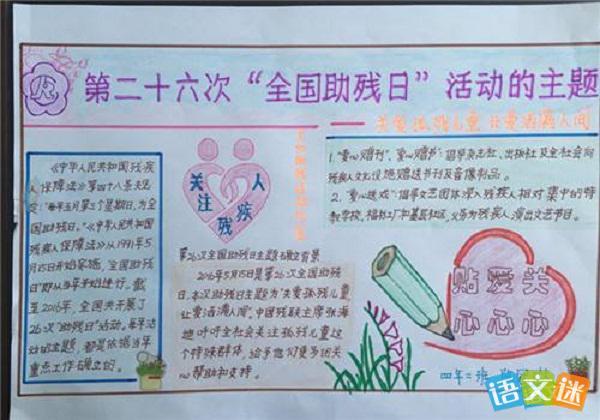 第二十六次“全国助残日”活动的主题
关爱孤残儿童 让爱洒满人间
《中华人民共和国残疾
人保障法》第四十八条规
定:“每年五月第三个星期日,为
全国助残日。”《中华人民共和国
残疾人保障法》从1991年5
月15日开始实施,“全国助残日
”即从当年开始进行。截
至2016年,全国共开展了
26次“助残日”活动。每年活
动的主题,都是依据当年
重点工作确立的。
关注
残疾
人
第26次全国助残日主题确立背景
2016年5月15日是第26次全国助残
日,本次助残日主题为“关爱孤残儿童
让爱洒满人间”,中国残联主席张海
迪呼吁全社会关注孤残儿童这
个特殊群体,给予他们更多的关
心帮助和支持。
1.“爱心赠刊”、“爱心赠书”:倡导杂志社、出版社及全社会向
残疾人文化设施赠送书刊及音像制品。
2.“爱心送戏”:倡导文艺团体深入残疾人相对集中的特
教学校、福利工厂和基层社区,义务为残疾人演出文艺节目。
贴爱关
心心心
四年二班
语文迷